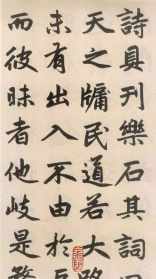 詩具刊樂石其詞曰
天之牖民道若大路
未有出入不由於
而彼昧者他岐是